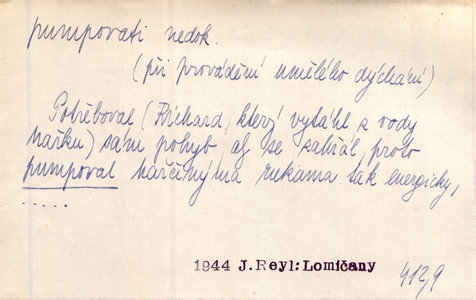 pumpovati nedok.
(při provádění umělého dýchání)
Potřeboval (Richard, který vytáhl z vody
Mařku) sám pohyb aj se zahřál, proto
pumpoval mařčinýma rukama tak energicky,
.....
1944 J.Reyl:Lomičany
412,9